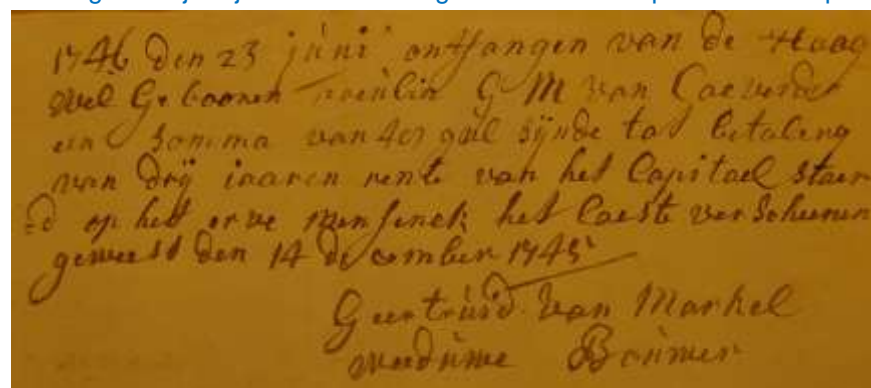 1746 den 23 juni ontfangen van de Hoog
wel Gebooren freulin G M van Coeverden
een somma van 401 gul sijnde tot betaling
van drij iaaren rente van het Capitael staen
d op het erve mensinck het laeste verscheenen
geweest den 14 december 1745
Geertruid van Markel
weeduwe Bouwer